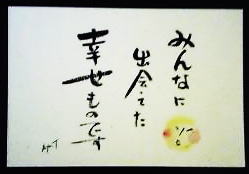 みんなに
出会えた
幸せものです